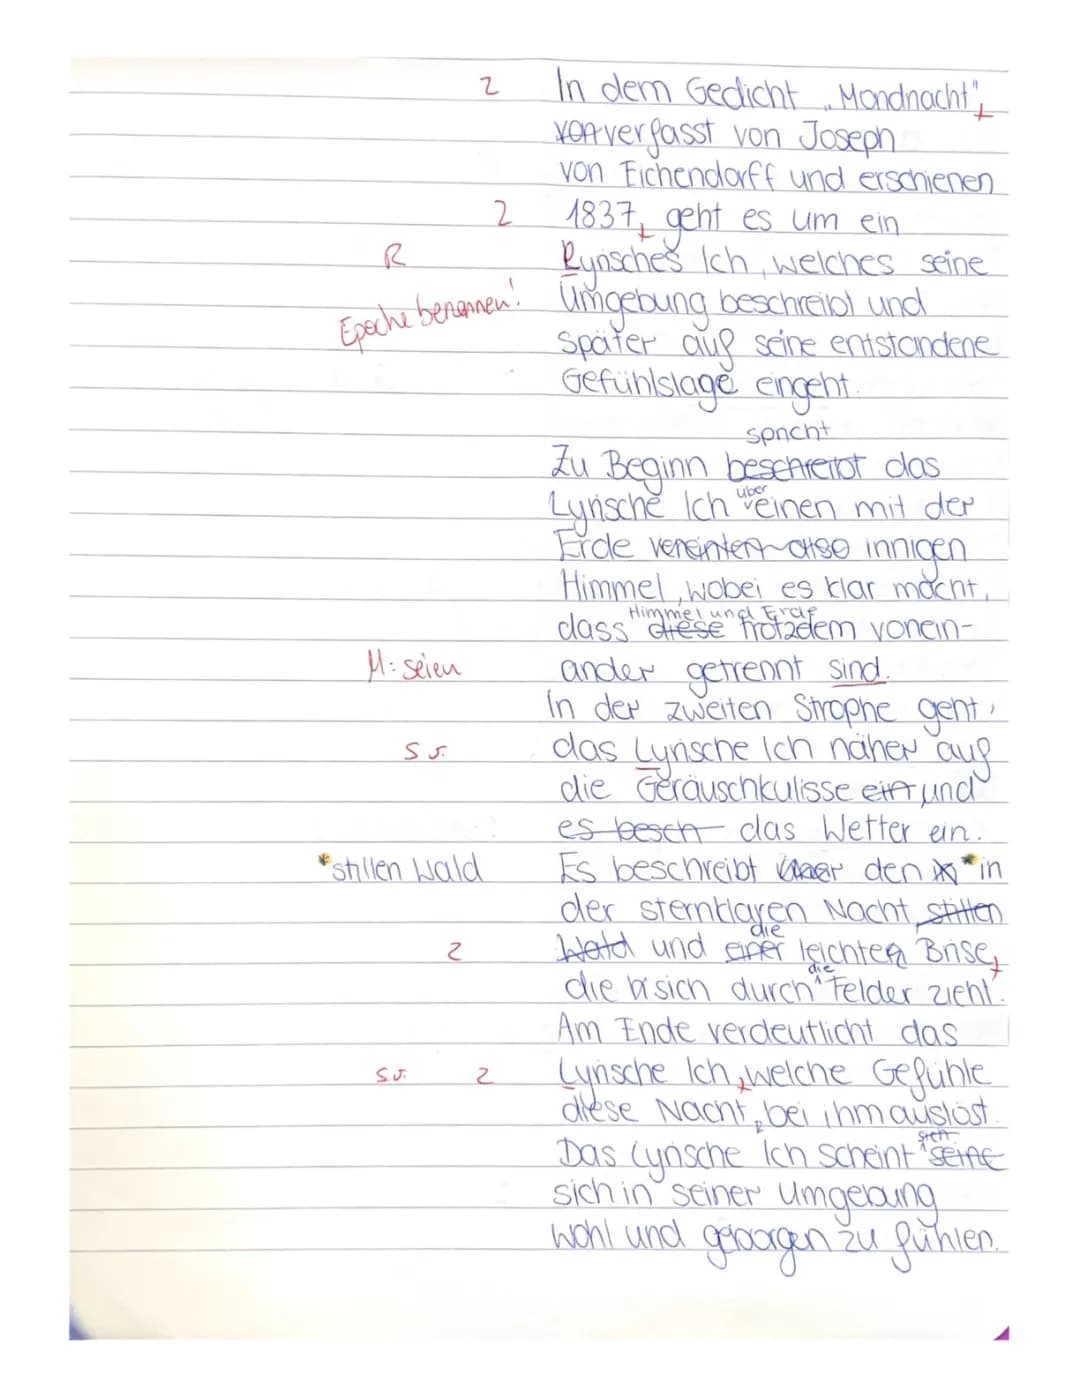 2 In dem Gedicht „Mondnacht",
von verfasst von Joseph
von Eichendorff und erschienen
2 1837, geht es um ein
R Lyrisches Ich, welches seine
Epoche benennen! Umgebung beschreibt und
später auf seine entstandene
Gefühlslage eingeht.
spricht
Zu Beginn beschreibt das
Lyrische Ich über einen mit der
Erde vereinten also innigen
Himmel, wobei es klar macht,
Himmel und Erde
dass diese trotzdem vonein-
M: seien ander getrennt sind.
In der zweiten Strophe geht
S.v. das Lyrische Ich näher auf
die Geräuschkulisse ein und
es besch das Wetter ein.
*stillen Wald Es beschreibt über den * in
der sternklaren Nacht stillen
die
2 Wald und einer leichten Brise,
die
die sich durch Felder zieht.
Am Ende verdeutlicht das
S.v. 2 Lyrische Ich, welche Gefühle
diese Nacht bei ihm auslöst.
sich
Das Lyrische Ich scheint seine
sich in seiner Umgebung
wohl und geborgen zu fühlen.